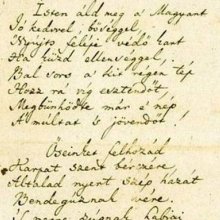 Isten áld meg a Magyart
Jó kedvvel, bőséggel,
Nyújts feléje védő kart
Ha küzd ellenséggel;
Bal sors a kit régen tép
Hozz rá víg esztendőt,
Megbűnhődte már e nép
A multat s jövendőt!
Őseinket felhozád
Kárpát szent bérczére,
Általad nyert szép hazát
Bendegúznak vére